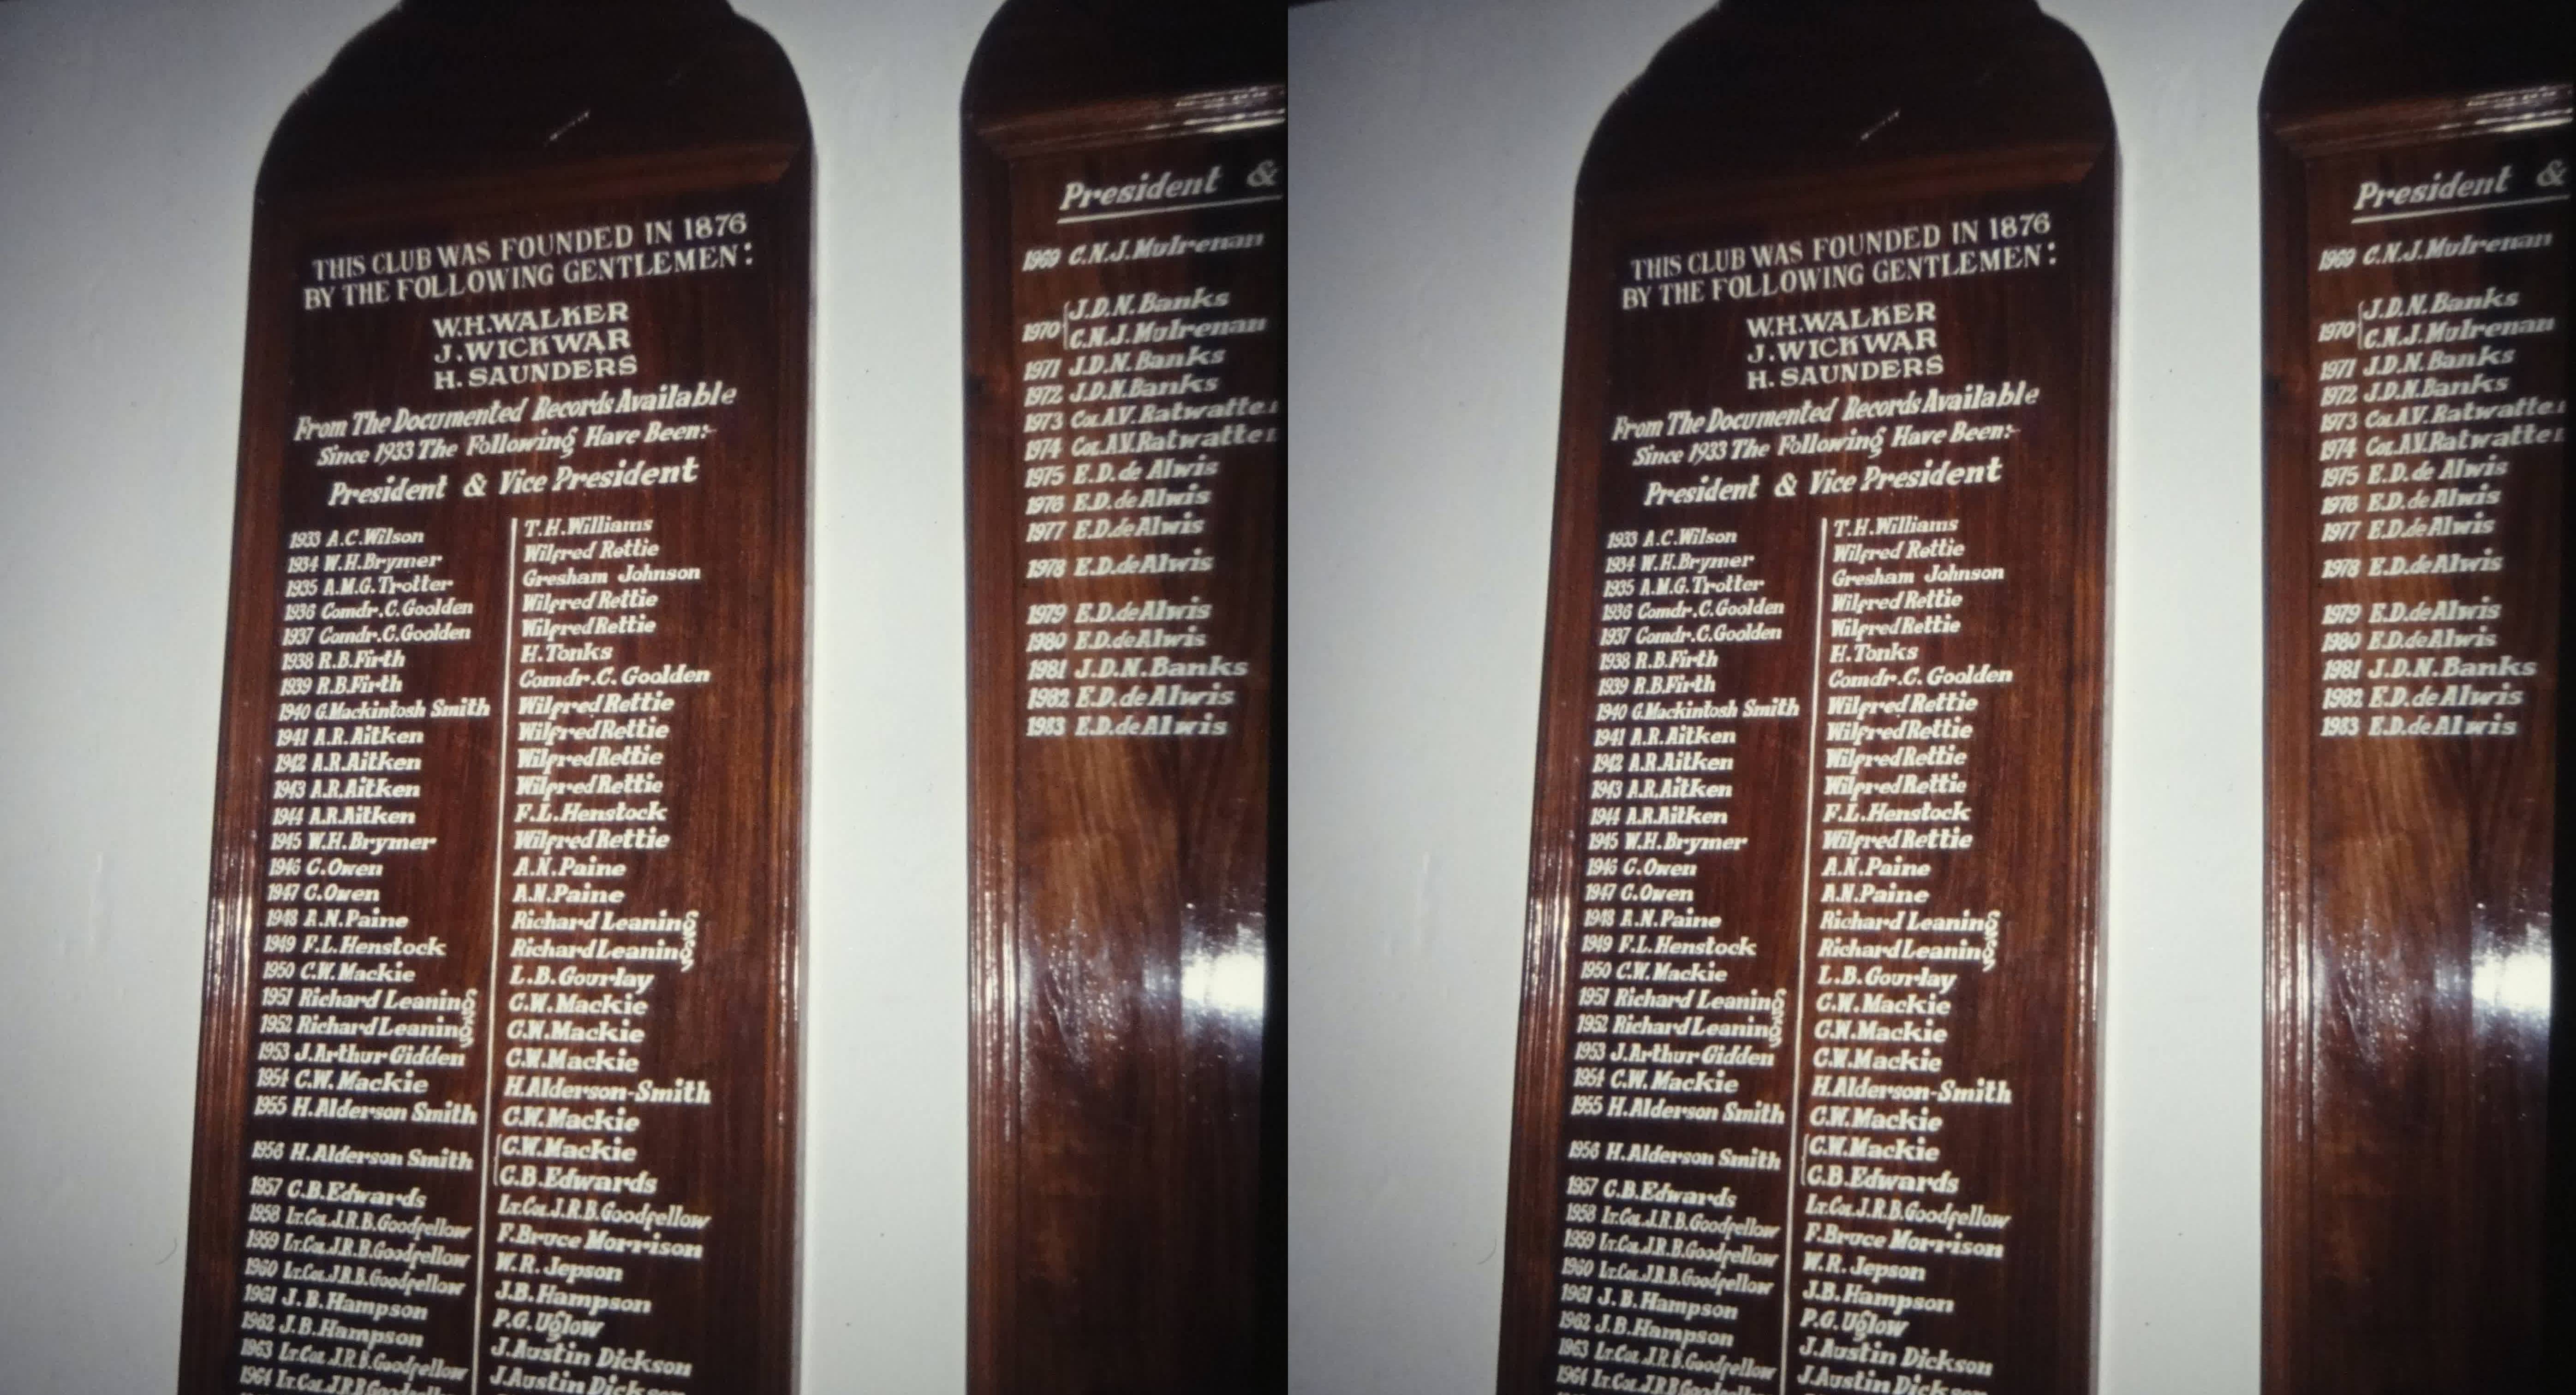 THIS CLUB WAS FOUNDED IN 1876
BY THE FOLLOWING GENTLEMEN:
W.H.WALKER
J.WICKWAR
H. SAUNDERS
From The Documented Records Available
Since 1933 The Following Have Been:-
President & Vice President
1933 A.C.Wilson T.H.Williams
1934 W.H.Brymer Wilfred Rettie
1935 A.M.G.Trotter Gresham Johnson
1936 Comdr.C.Goolden Wilfred Rettie
1937 Comdr.C.Goolden Wilfred Rettie
1938 R.B.Firth H.Tonks
1939 R.B.Firth Comdr.C. Goolden
1940 G.Mackintosh Smith Wilfred Rettie
1941 A.R.Aitken Wilfred Rettie
1942 A.R.Aitken Wilfred Rettie
1943 A.R.Aitken Wilfred Rettie
1944 A.R.Aitken F.L.Henstock
1945 W.H.Brymer Wilfred Rettie
1946 C.Owen A.N.Paine
1947 C.Owen A.N.Paine
1948 A.N.Paine Richard Leaning
1949 F.L.Henstock Richard Leaning
1950 C.W.Mackie L.B.Gourlay
1951 Richard Leaning C.W.Mackie
1952 Richard Leaning C.W.Mackie
1953 J.Arthur Gidden C.W.Mackie
1954 C.W.Mackie H.Alderson-Smith
1955 H.Alderson Smith C.W.Mackie
1956 H.Alderson Smith C.W.Mackie
C.B.Edwards
1957 C.B.Edwards Lt.Col.J.R.B.Goodfellow
1958 Lt.Col.J.R.B.Goodfellow F.Bruce Morrison
1959 Lt.Col.J.R.B.Goodfellow W.R.Jepson
1960 Lt.Col.J.R.B.Goodfellow J.B.Hampson
1961 J.B.Hampson P.G.Uglow
1962 J.B.Hampson J.Austin Dickson
1963 Lt.Col.J.R.B.Goodfellow J.Austin Dickson
1964 Lt.Col.J.R.B.Goodfellow
President &
1969 C.N.J.Mulrenan
1970 J.D.N.Banks
C.N.J.Mulrenan
1971 J.D.N.Banks
1972 J.D.N.Banks
1973 Col.A.V.Ratwatte
1974 Col.A.V.Ratwatte
1975 E.D.de Alwis
1976 E.D.de Alwis
1977 E.D.de Alwis
1978 E.D.de Alwis
1979 E.D.de Alwis
1980 E.D.de Alwis
1981 J.D.N.Banks
1982 E.D.de Alwis
1983 E.D.de Alwis
THIS CLUB WAS FOUNDED IN 1876
BY THE FOLLOWING GENTLEMEN:
W.H.WALKER
J.WICKWAR
H. SAUNDERS
From The Documented Records Available
Since 1933 The Following Have Been:-
President & Vice President
1933 A.C.Wilson T.H.Williams
1934 W.H.Brymer Wilfred Rettie
1935 A.M.G.Trotter Gresham Johnson
1936 Comdr.C.Goolden Wilfred Rettie
1937 Comdr.C.Goolden Wilfred Rettie
1938 R.B.Firth H.Tonks
1939 R.B.Firth Comdr.C. Goolden
1940 G.Mackintosh Smith Wilfred Rettie
1941 A.R.Aitken Wilfred Rettie
1942 A.R.Aitken Wilfred Rettie
1943 A.R.Aitken Wilfred Rettie
1944 A.R.Aitken F.L.Henstock
1945 W.H.Brymer Wilfred Rettie
1946 C.Owen A.N.Paine
1947 C.Owen A.N.Paine
1948 A.N.Paine Richard Leaning
1949 F.L.Henstock Richard Leaning
1950 C.W.Mackie L.B.Gourlay
1951 Richard Leaning C.W.Mackie
1952 Richard Leaning C.W.Mackie
1953 J.Arthur Gidden C.W.Mackie
1954 C.W.Mackie H.Alderson-Smith
1955 H.Alderson Smith C.W.Mackie
1956 H.Alderson Smith C.W.Mackie
C.B.Edwards
1957 C.B.Edwards Lt.Col.J.R.B.Goodfellow
1958 Lt.Col.J.R.B.Goodfellow F.Bruce Morrison
1959 Lt.Col.J.R.B.Goodfellow W.R.Jepson
1960 Lt.Col.J.R.B.Goodfellow J.B.Hampson
1961 J.B.Hampson P.G.Uglow
1962 J.B.Hampson J.Austin Dickson
1963 Lt.Col.J.R.B.Goodfellow J.Austin Dickson
1964 Lt.Col.J.R.B.Goodfellow
President &
1969 C.N.J.Mulrenan
1970 J.D.N.Banks
C.N.J.Mulrenan
1971 J.D.N.Banks
1972 J.D.N.Banks
1973 Col.A.V.Ratwatte
1974 Col.A.V.Ratwatte
1975 E.D.de Alwis
1976 E.D.de Alwis
1977 E.D.de Alwis
1978 E.D.de Alwis
1979 E.D.de Alwis
1980 E.D.de Alwis
1981 J.D.N.Banks
1982 E.D.de Alwis
1983 E.D.de Alwis